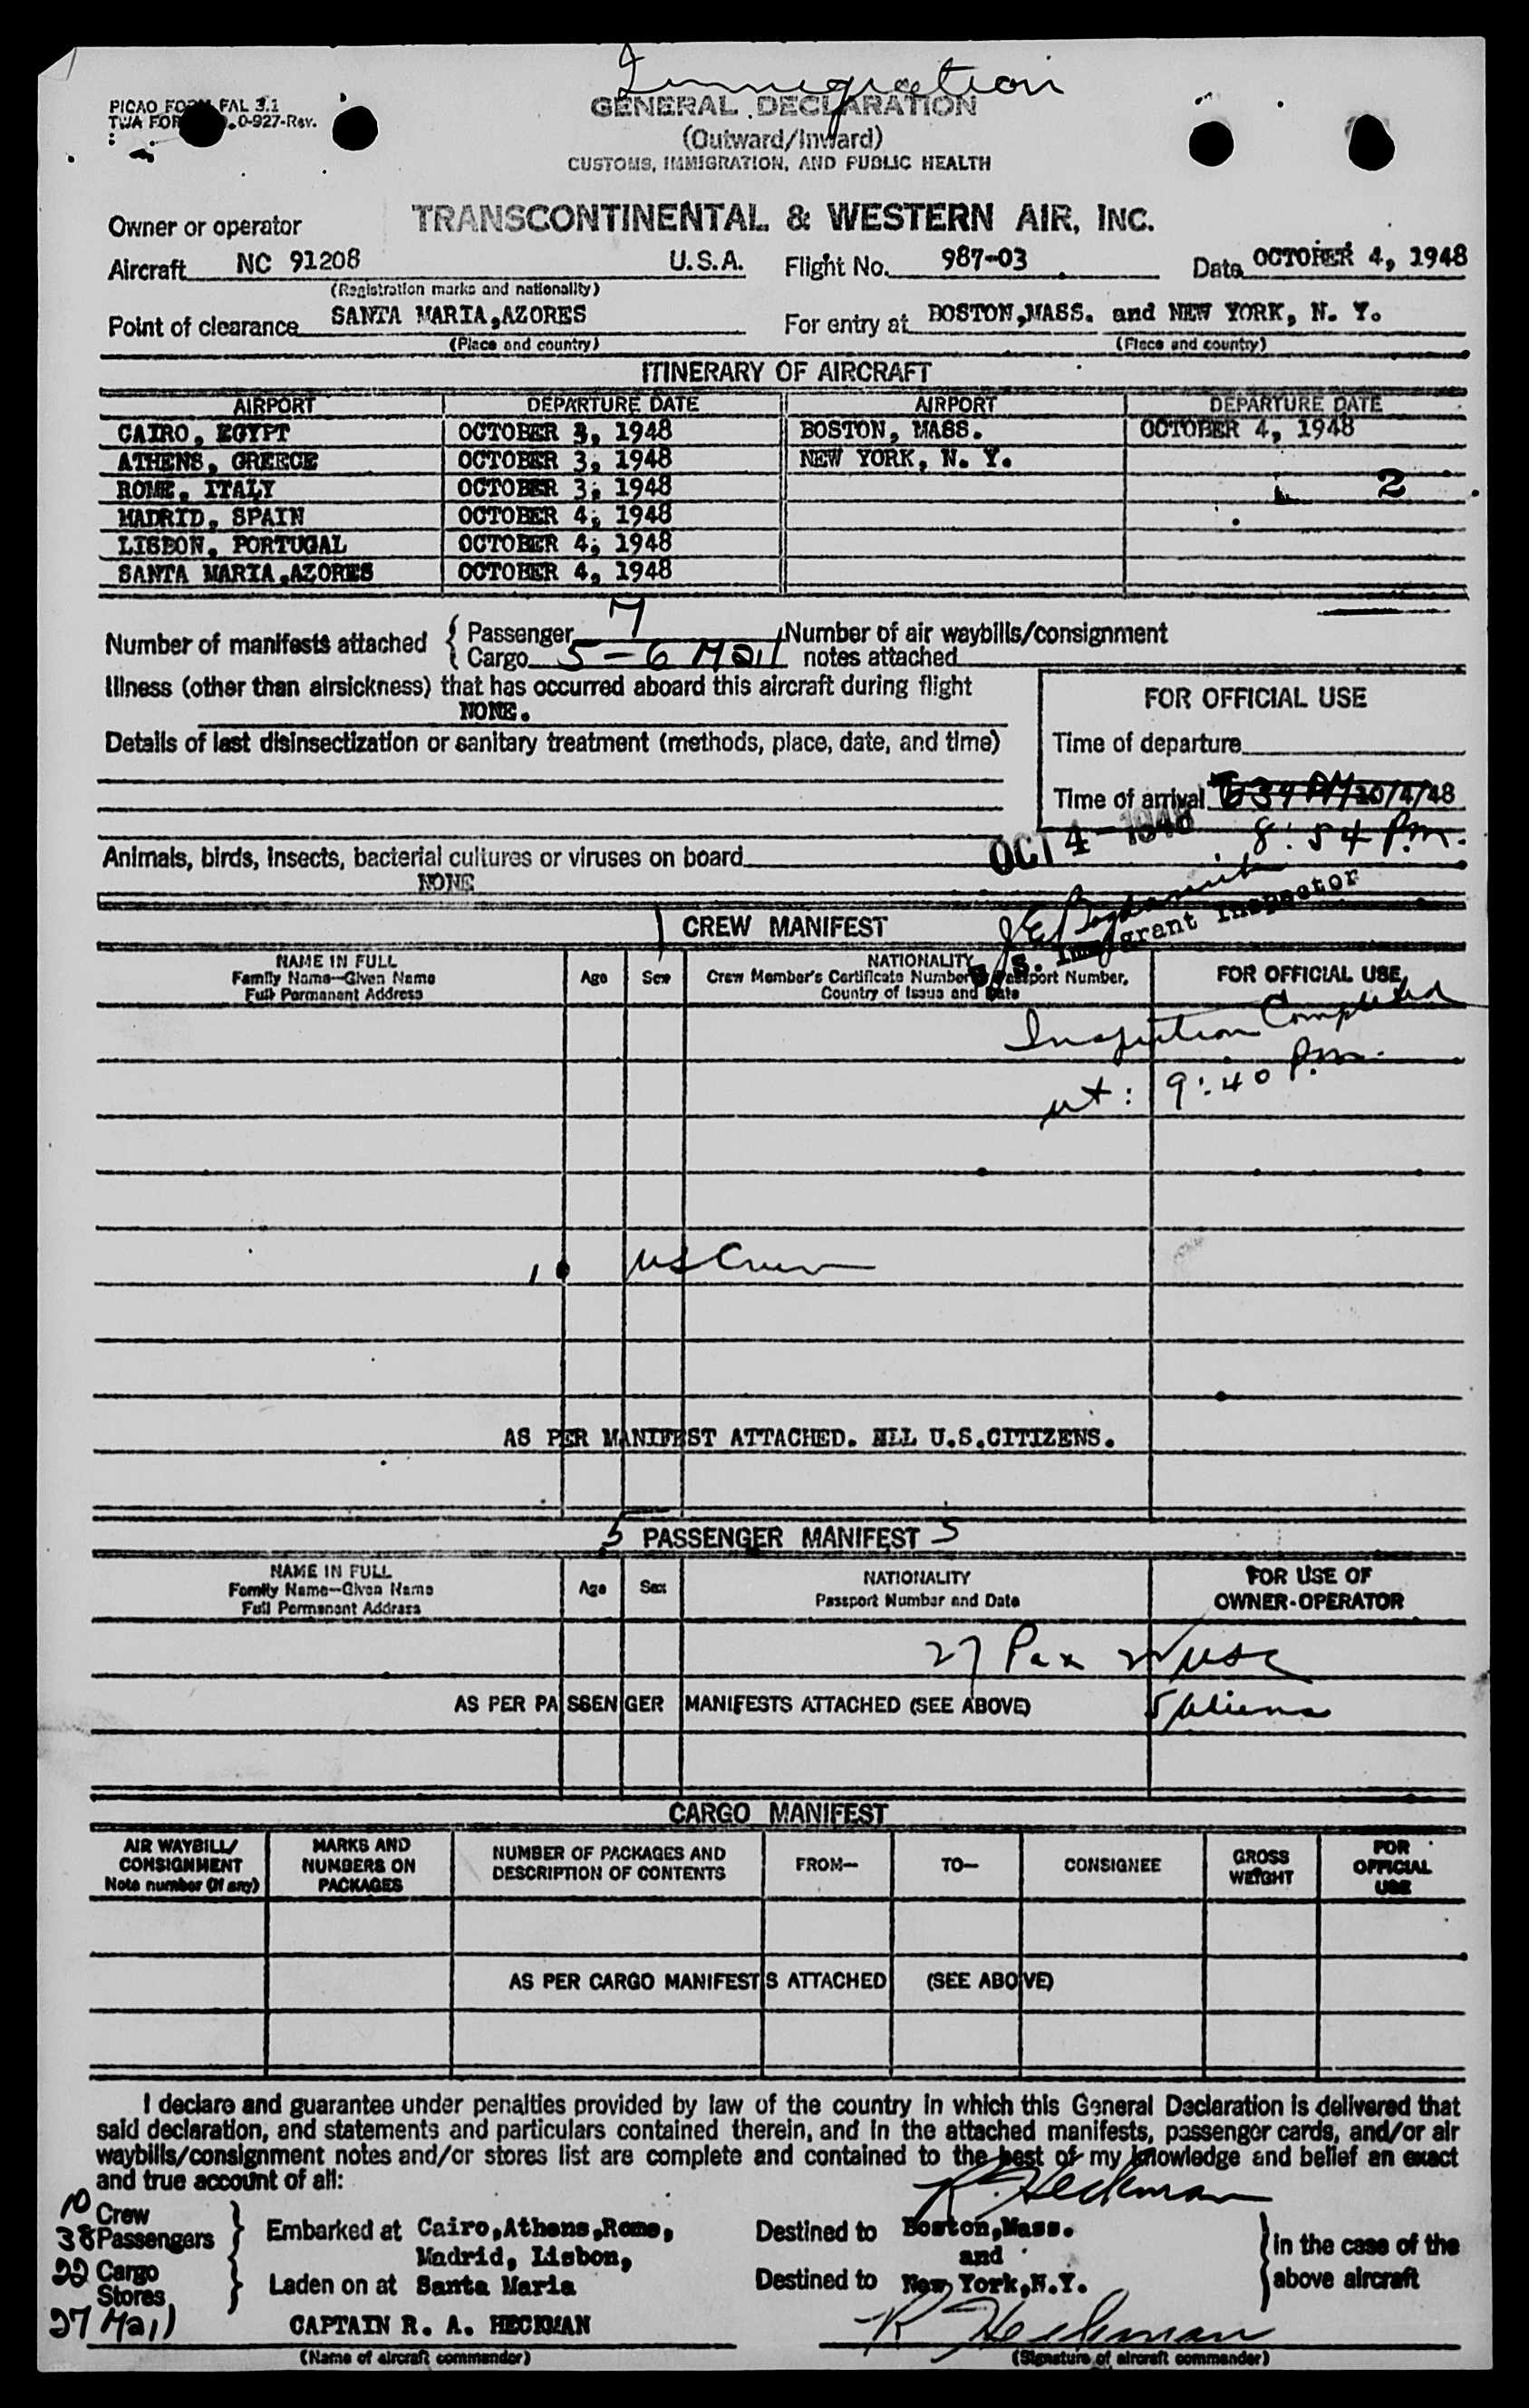 Immigration
PICAO FORM FAL 3.1
TWA FOR 0-927-Rev.
GENERAL DECLARATION
(Outward/Inward)
CUSTOMS, IMMIGRATION, AND PUBLIC HEALTH
Owner or operator TRANSCONTINENTAL & WESTERN AIR, INC.
Aircraft NC 91208 U.S.A. Flight No. 987-03 Date OCTOBER 4, 1948
(Registration marks and nationality)
Point of clearance SANTA MARIA, AZORES For entry at BOSTON, MASS. and NEW YORK, N. Y.
(Place and country) (Place and country)
ITINERARY OF AIRCRAFT
AIRPORT DEPARTURE DATE AIRPORT DEPARTURE DATE
CAIRO, EGYPT OCTOBER 3, 1948 BOSTON, MASS. OCTOBER 4, 1948
ATHENS, GREECE OCTOBER 3, 1948 NEW YORK, N. Y.
ROME, ITALY OCTOBER 3, 1948 2
MADRID, SPAIN OCTOBER 4, 1948
LISBON, PORTUGAL OCTOBER 4, 1948
SANTA MARIA, AZORES OCTOBER 4, 1948
Number of manifests attached { Passenger 7 Number of air waybills/consignment
Cargo 5-6 Mail notes attached
Illness (other than airsickness) that has occurred aboard this aircraft during flight
NONE.
FOR OFFICIAL USE
Details of last disinsectization or sanitary treatment (methods, place, date, and time)
Time of departure
Time of arrival 639 PM 10/4/48
OCT 4 - 1948 8:54 P.m.
Animals, birds, insects, bacterial cultures or viruses on board
NONE
U. S. Immigrant Inspector
1 CREW MANIFEST
NAME IN FULL
Family Name—Given Name
Full Permanent Address
Age Sex
NATIONALITY
Crew Member's Certificate Number, Passport Number,
Country of Issue and Date
FOR OFFICIAL USE
Inspection Completed
at: 9:40 P.m.
10 US Crew
AS PER MANIFEST ATTACHED. ALL U.S.CITIZENS.
5 PASSENGER MANIFEST 5
NAME IN FULL
Family Name—Given Name
Full Permanent Address
Age Sex
NATIONALITY
Passport Number and Date
FOR USE OF
OWNER-OPERATOR
27 Pax 22 USC
AS PER PASSENGER MANIFESTS ATTACHED (SEE ABOVE) 5 Aliens
CARGO MANIFEST
AIR WAYBILL/
CONSIGNMENT
Note number (if any)
MARKS AND
NUMBERS ON
PACKAGES
NUMBER OF PACKAGES AND
DESCRIPTION OF CONTENTS
FROM—
TO—
CONSIGNEE
GROSS
WEIGHT
FOR
OFFICIAL
USE
AS PER CARGO MANIFESTS ATTACHED (SEE ABOVE)
I declare and guarantee under penalties provided by law of the country in which this General Declaration is delivered that
said declaration, and statements and particulars contained therein, and in the attached manifests, passenger cards, and/or air
waybills/consignment notes and/or stores list are complete and contained to the best of my knowledge and belief an exact
and true account of all:
R. Heckman
10 Crew
38 Passengers } Embarked at Cairo, Athens, Rome, Destined to Boston, Mass.
Madrid, Lisbon, and
22 Cargo
Stores } Laden on at Santa Maria Destined to New York, N.Y.
in the case of the
above aircraft
27 Mail CAPTAIN R. A. HECKMAN R Heckman
(Name of aircraft commander) (Signature of aircraft commander)